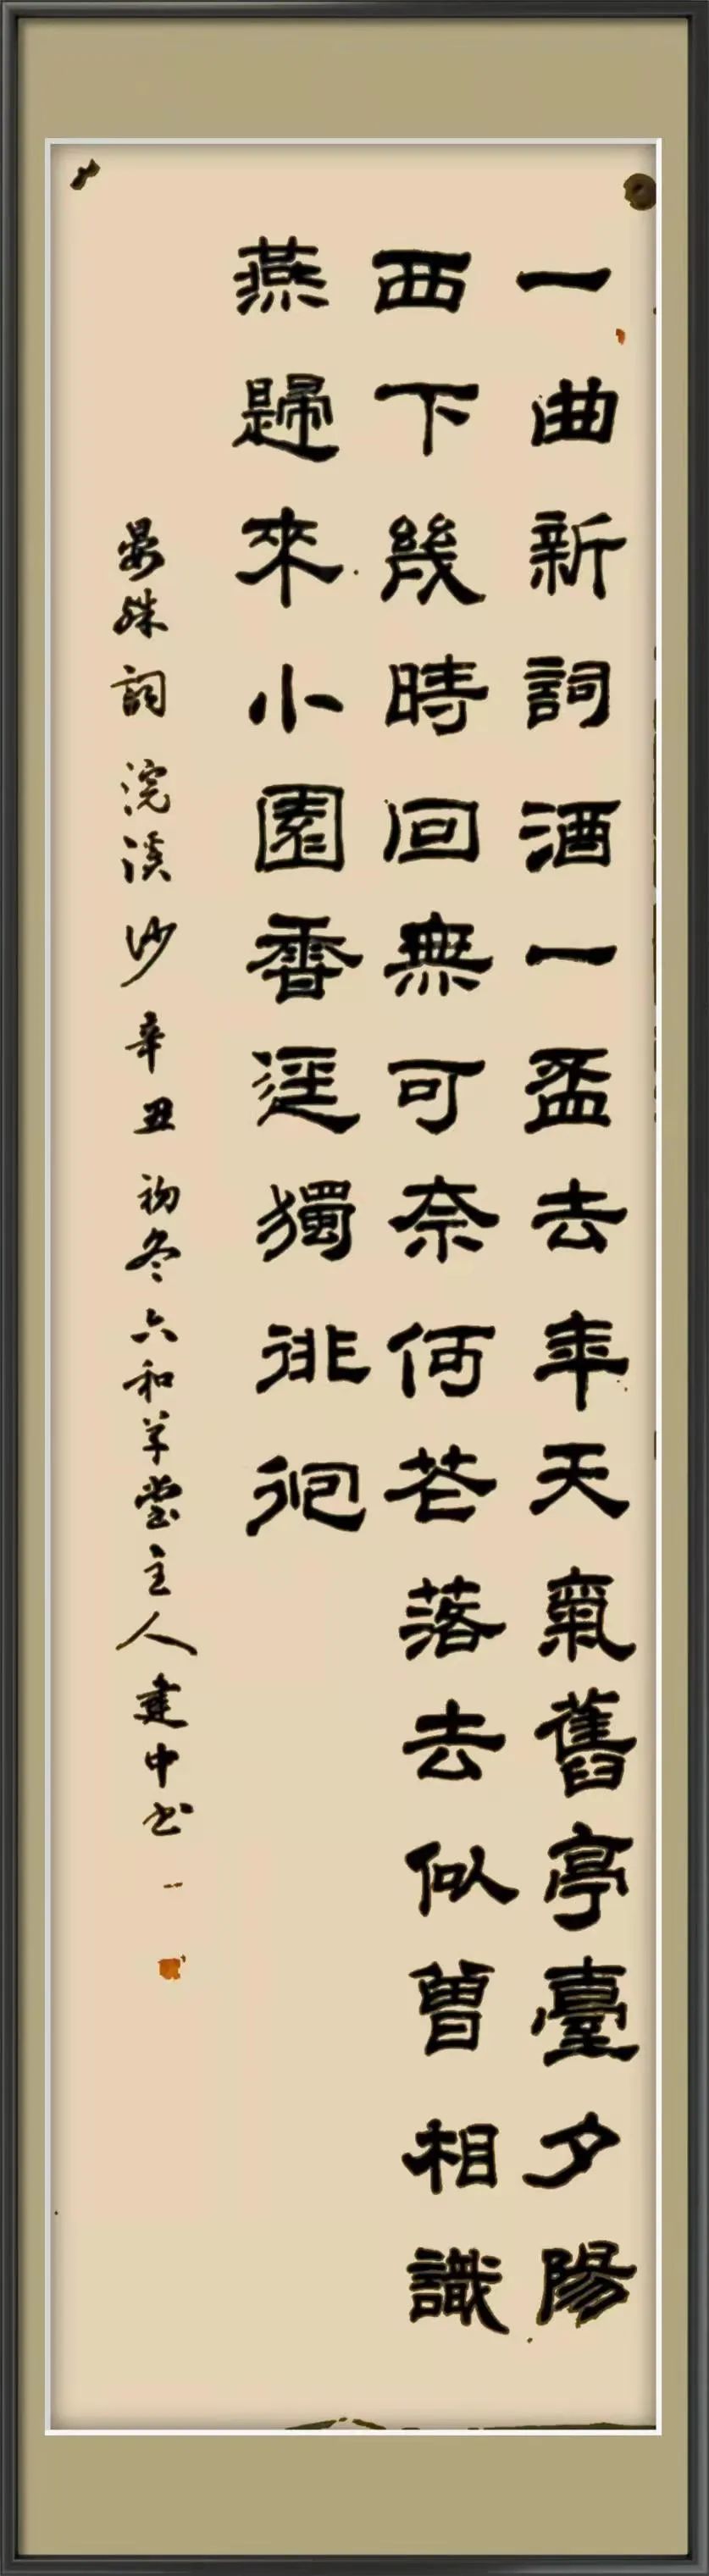 一曲新詞酒一盃去年天氣舊亭臺夕陽
西下幾時回無可奈何花落去似曾相識
燕歸來小園香逕獨徘徊
晏殊詞浣溪沙辛丑初冬六和草堂主人建中书